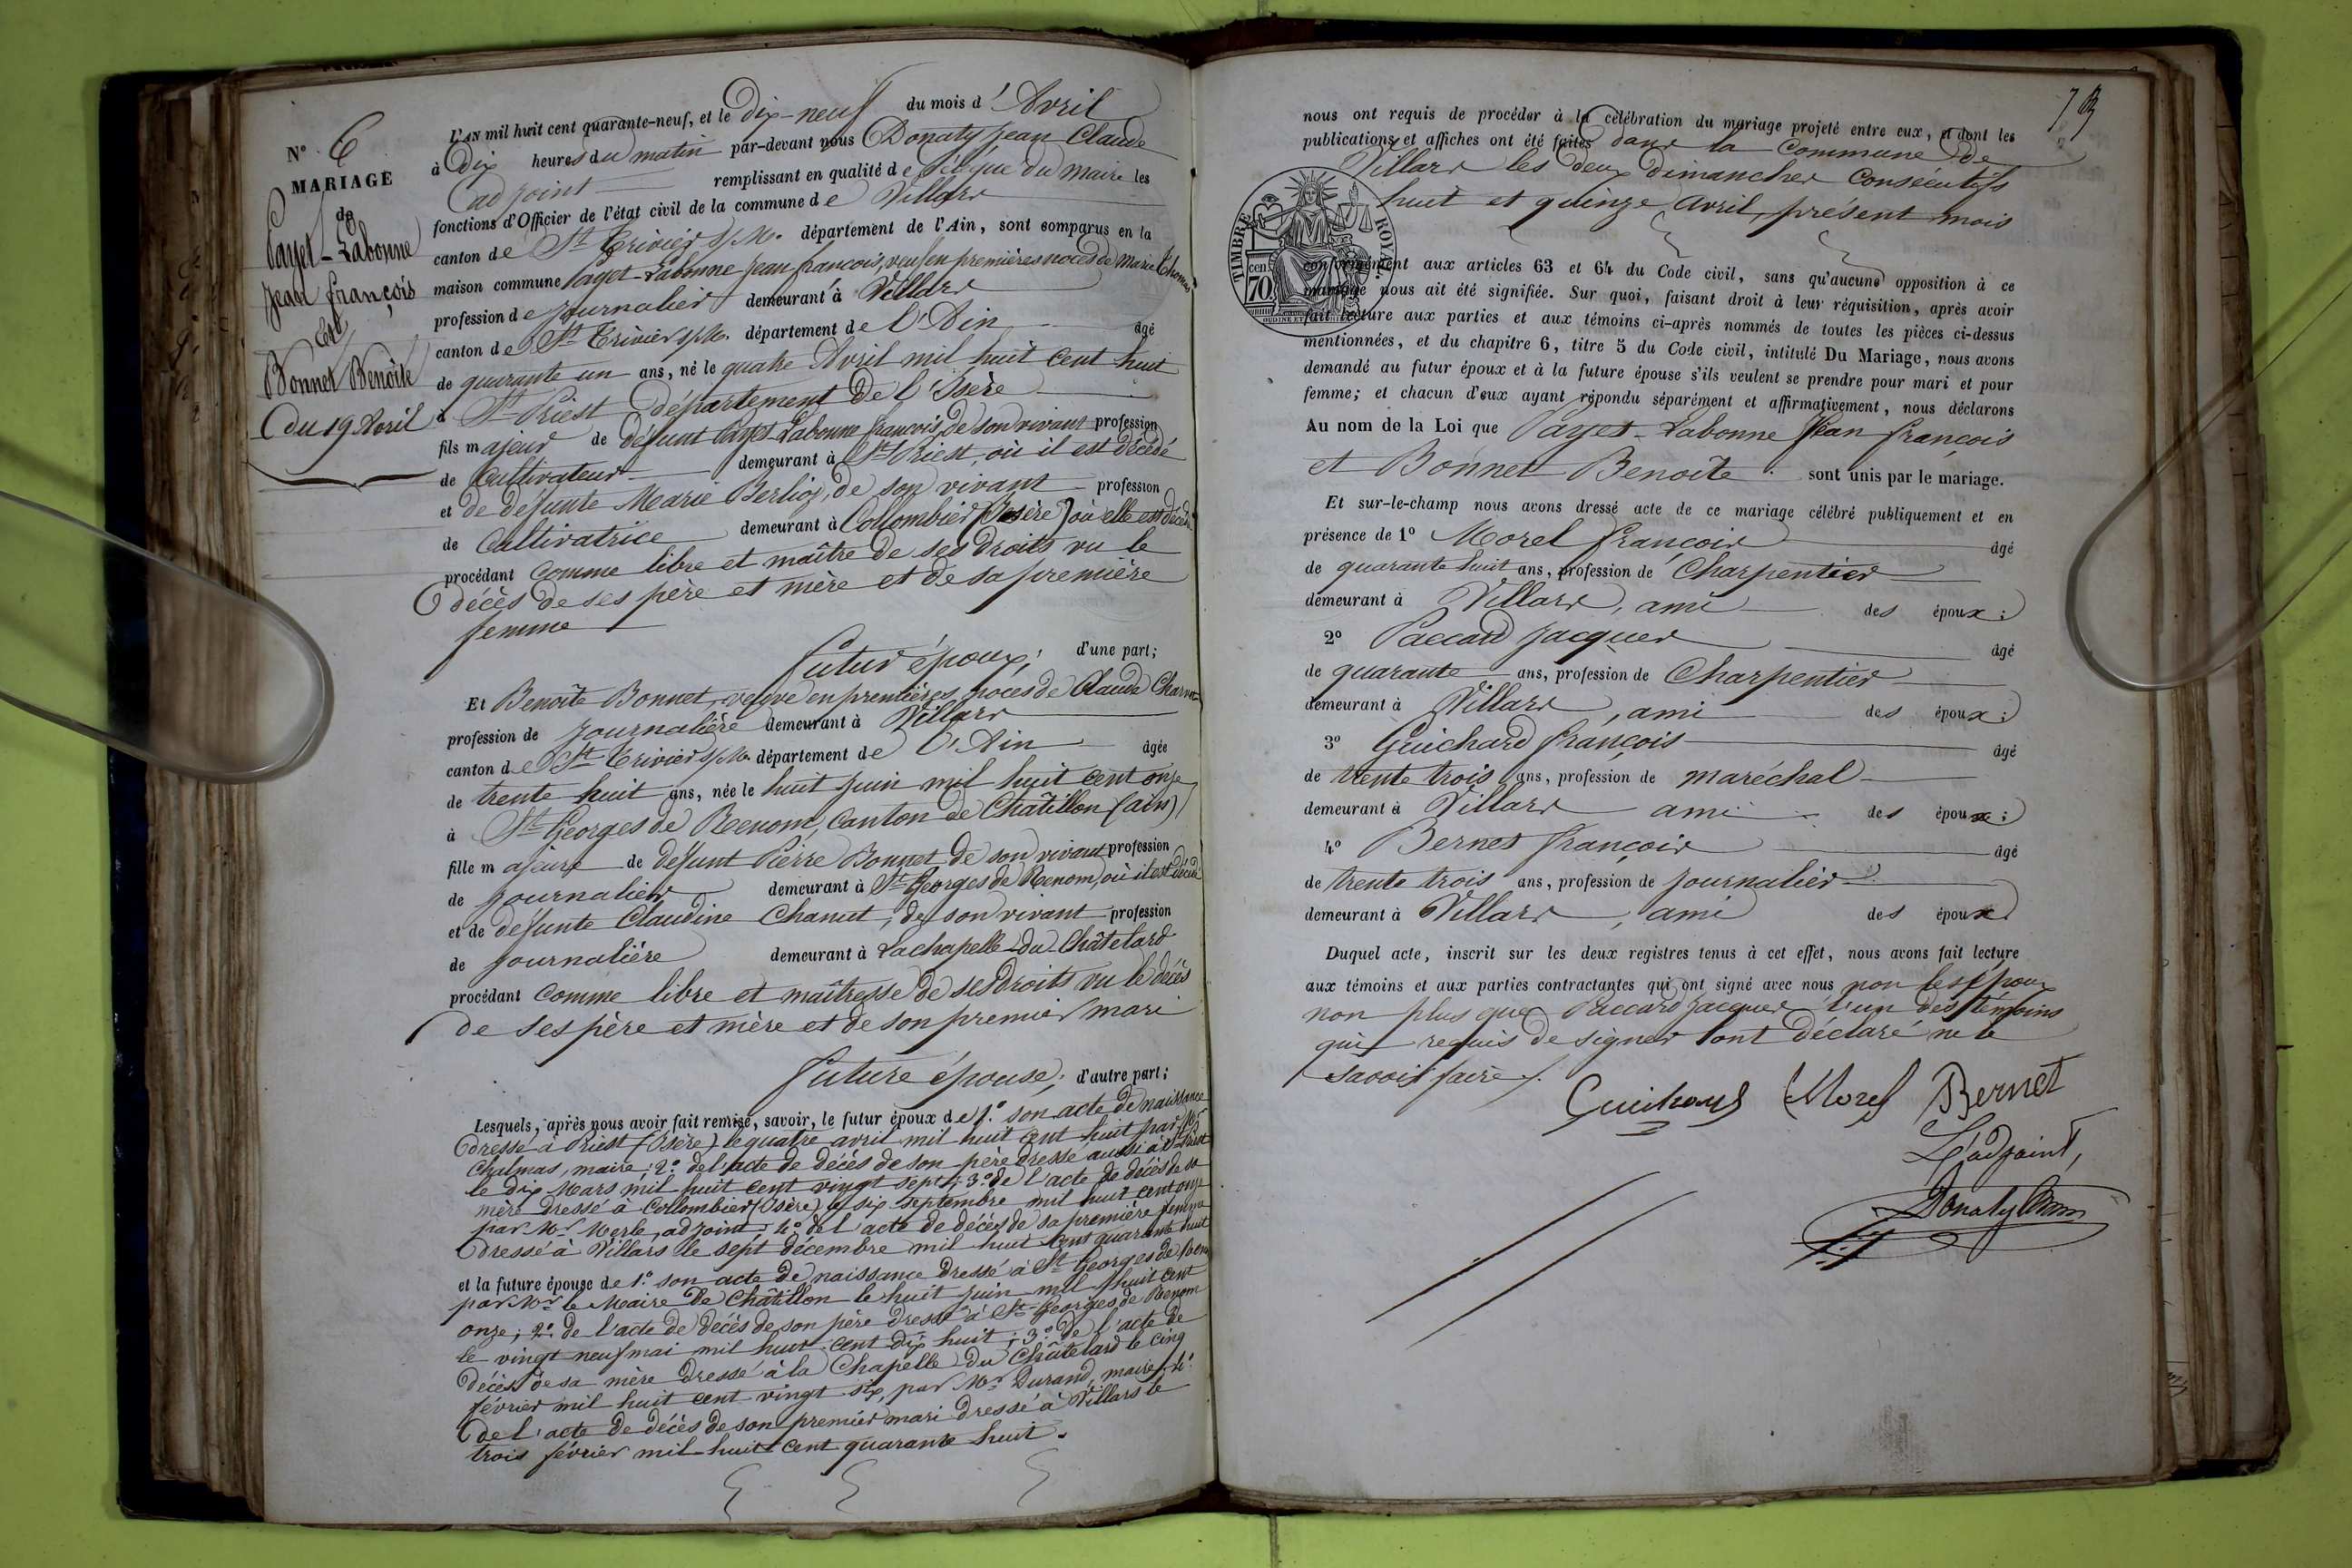 N° 6
MARIAGE
de
Payet-Labonne
Jean françois
Et
Bonnet Benoîte
du 19 Avril
L'AN mil huit cent quarante-neuf, et le dix-neuf du mois d'Avril
à dix heures du matin par-devant nous Donaty Jean Claude
adjoint remplissant en qualité de délégué du Maire les
fonctions d'Officier de l'état civil de la commune de Villars
canton de St Trivier s/M. département de l'Ain, sont comparus en la
maison commune Payet-Labonne Jean françois, veuf en premières noces de Marie Thomas
profession de journalier demeurant à Villars
canton de St Trivier s/M. département de l'Ain âgé
de quarante un ans, né le quatre Avril mil huit cent huit
à St Priest département de l'Isère
fils majeur de défunt Payet-Labonne françois de son vivant profession
de Cultivateur demeurant à St Priest, où il est décédé
et de défunte Marie Berlioz, de son vivant profession
de Cultivatrice demeurant à Collombier (Isère) où elle est décédée
procédant comme libre et maître de ses droits vu le
décès de ses père et mère et de sa première
femme
futur époux, d'une part;
Et Benoîte Bonnet, veuve en premières noces de Claude
profession de journalière demeurant à Villars
canton de St Trivier s/M. département de l'Ain âgée
de trente huit ans, née le huit juin mil huit cent onze
à St Georges de Renom, canton de Châtillon (ain)
fille majeure de défunt Pierre Bonnet de son vivant profession
de journalier demeurant à St Georges de Renom, où il est décédé
et de défunte Claudine Chanut, de son vivant profession
de journalière demeurant à Lachapelle-du-Châtelard
procédant comme libre et maîtresse de ses droits vu le décès
de ses père et mère et de son premier mari
future épouse; d'autre part;
Lesquels, après nous avoir fait remise, savoir, le futur époux de 1.° son acte de naissance
dressé à Priest (Isère) le quatre avril mil huit cent huit par Mr
Chalmas, maire; 2.° de l'acte de décès de son père dressé aussi à St Priest
le dix Mars mil huit cent vingt sept; 3.° de l'acte de décès de sa
mère dressé à Collombier (Isère) le six septembre mil huit cent onze
par Mr Merle, adjoint; 4.° de l'acte de décès de sa première femme
dressé à Villars le sept décembre mil huit cent quarante huit
et la future épouse de 1.° son acte de naissance dressé à St Georges de Renom
par Mr le Maire de Châtillon le huit juin mil huit cent
onze; 2.° de l'acte de décès de son père dressé à St Georges de Renom
le vingt neuf mai mil huit cent dix huit; 3.° de l'acte de
décès de sa mère dressé à la Chapelle du Châtelard le cinq
février mil huit cent vingt six, par Mr Durand, maire; 4.°
de l'acte de décès de son premier mari dressé à Villars le
trois février mil-huit cent quarante huit.
nous ont requis de procéder à la célébration du mariage projeté entre eux, et dont les
publications et affiches ont été faites dans la commune de
Villars les deux dimanches consécutifs
huit et quinze avril, présent mois
TIMBRE ROYAL
70 cen.
conformément aux articles 63 et 64 du Code civil, sans qu'aucune opposition à ce
mariage nous ait été signifiée. Sur quoi, faisant droit à leur réquisition, après avoir
fait lecture aux parties et aux témoins ci-après nommés de toutes les pièces ci-dessus
mentionnées, et du chapitre 6, titre 5 du Code civil, intitulé Du Mariage, nous avons
demandé au futur époux et à la future épouse s'ils veulent se prendre pour mari et pour
femme; et chacun d'eux ayant répondu séparément et affirmativement, nous déclarons
Au nom de la Loi que Payet-Labonne Jean françois
et Bonnet Benoîte sont unis par le mariage.
Et sur-le-champ nous avons dressé acte de ce mariage célébré publiquement et en
présence de 1° Morel françois âgé
de quarante huit ans, profession de Charpentier
demeurant à Villars, ami des époux;
2° Paccard Jacques âgé
de quarante ans, profession de Charpentier
demeurant à Villars, ami des époux;
3° Guichard françois âgé
de trente trois ans, profession de maréchal
demeurant à Villars ami des époux;
4° Bernet françois âgé
de trente trois ans, profession de journalier
demeurant à Villars, ami des époux
Duquel acte, inscrit sur les deux registres tenus à cet effet, nous avons fait lecture
aux témoins et aux parties contractantes qui ont signé avec nous non les époux
non plus que Paccard Jacques l'un des témoins
qui requis de signer ont déclaré ne le
savoir faire.
Guichard Morel Bernet
L'adjoint,
Donaty